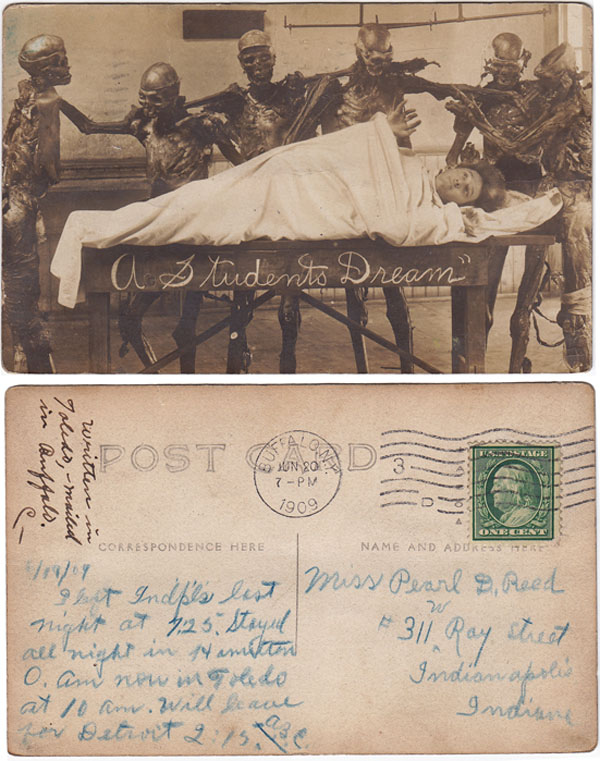 A Students Dream"
Written in
Toledo, -mailed
in Buffalo.
C-
POST CARD
BUFFALO, N.Y.
JUN 20
7-PM
1909
3
D
U.S. POSTAGE
ONE CENT
CORRESPONDENCE HERE
NAME AND ADDRESS HERE
/19/09
I left Indpls last
night at 7.25. Stayed
all night in Hamilton
O. Am now in Toledo
at 10 am. Will leave
for Detroit 2:15. C.
Miss Pearl D. Reed
W
# 311 Ray Street
Indianapolis
Indiana